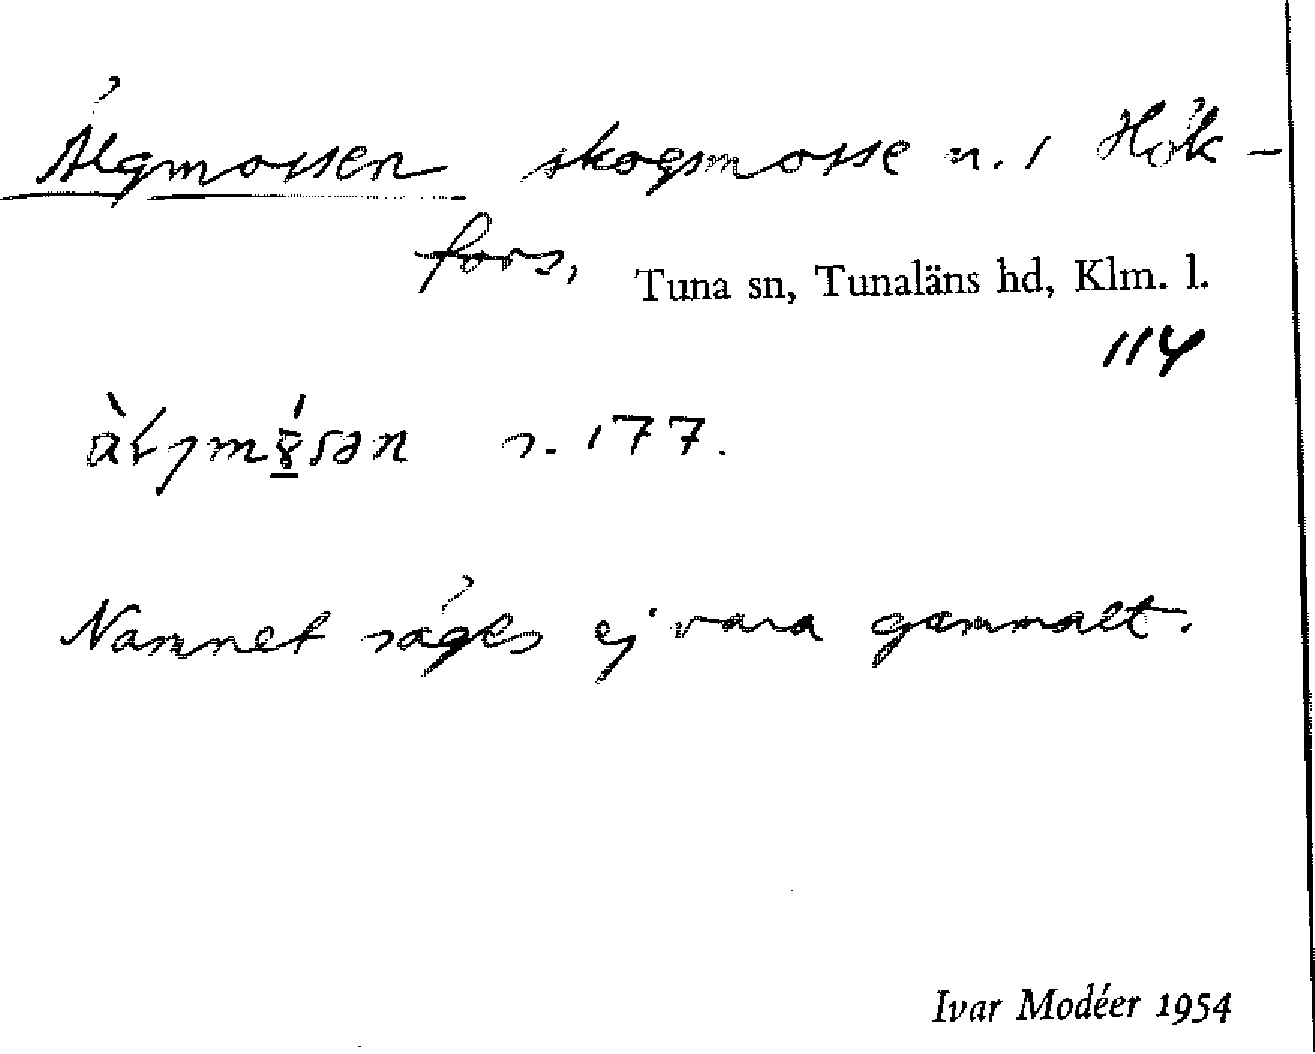 Älgmossen skogsmosse n. i Hök-
fors, Tuna sn, Tunaläns hd, Klm. l.
114
s. 177.
Namnet säges ej vara gammalt.
Ivar Modéer 1954